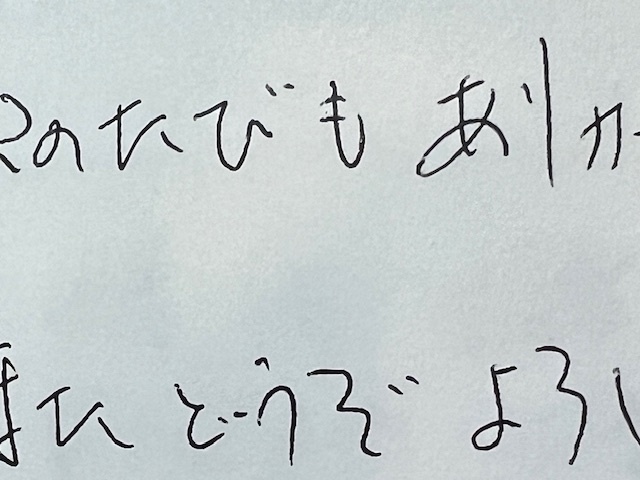 のたびも ありか
また どうぞ よろし